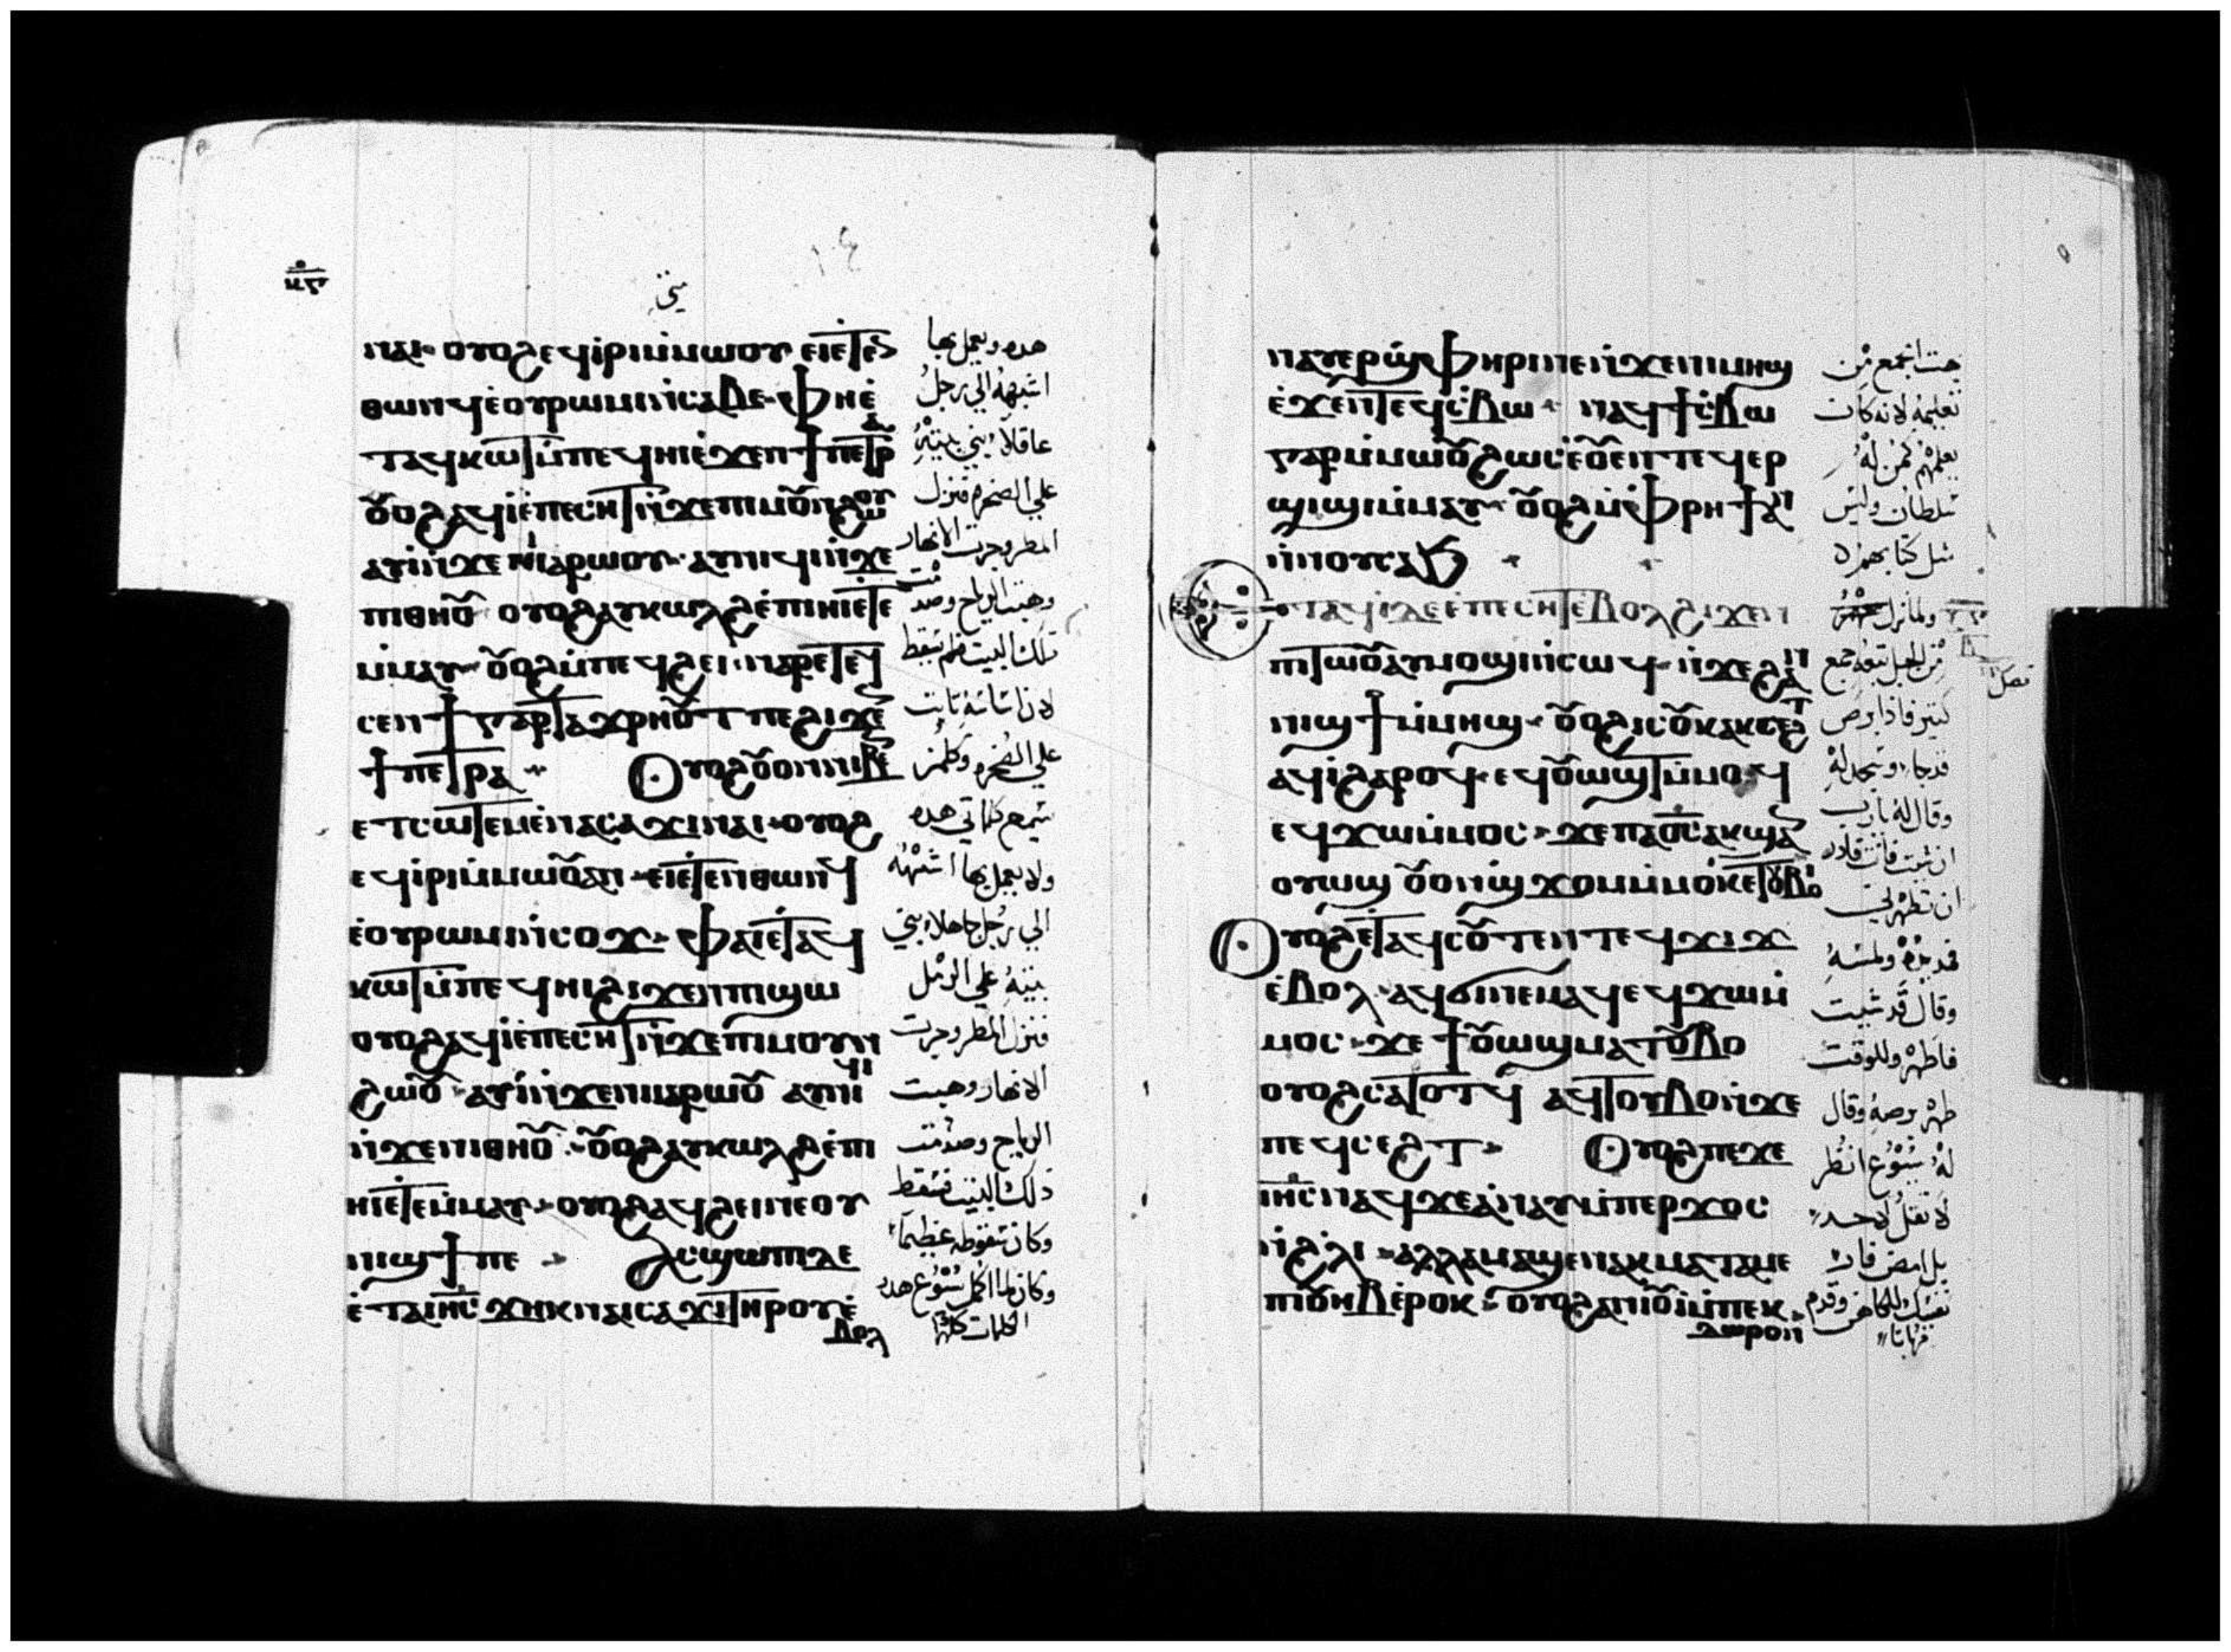 ⲛⲁⲓ· ⲟⲩⲟϩ ⲉϥⲓⲣⲓ ⲙ̀ⲙⲱⲟⲩ ⲉⲓⲉⲧⲉⲛ
ⲑⲱⲛϥ ⲉ̀ⲟⲩⲣⲱⲙⲓ ⲛ̀ⲥⲁⲃⲉ· ⲫⲏⲉ̀
ⲧⲁϥⲕⲱⲧ ⲙ̀ⲡⲉϥⲏⲓ ⲉ̀ϫⲉⲛ ϯⲡⲉⲧⲣⲁ
ⲟⲩⲟϩ ⲁϥⲓ̀ ⲉ̀ⲡⲉⲥⲏⲧ ⲛ̀ϫⲉ ⲡⲓⲙⲟⲩⲛϩⲱⲟⲩ
ⲁⲩⲓ̀ ⲛ̀ϫⲉ ⲛⲓⲁⲣⲱⲟⲩ· ⲁⲩⲛⲓϥⲓ ⲛ̀ϫⲉ
ⲛⲓⲑⲏⲟⲩ ⲟⲩⲟϩ ⲁⲩⲕⲱⲗϩ ⲉ̀ⲡⲓⲏⲓ ⲉⲧⲉ
ⲙ̀ⲙⲁⲩ· ⲟⲩⲟϩ ⲙ̀ⲡⲉϥϩⲉⲓ ⲛⲁⲣⲉ ⲧⲉϥ
ⲥⲉⲛϯ ⲅⲁⲣ ⲧⲁϫⲣⲏⲟⲩⲧ ⲡⲉ ϩⲓϫⲉⲛ
ϯⲡⲉⲧⲣⲁ· Ⲟⲩⲟϩ ⲟⲩⲟⲛ ⲛⲓⲃⲉⲛ
ⲉⲧⲥⲱⲧⲉⲙ ⲉ̀ⲛⲁⲥⲁϫⲓ ⲛⲁⲓ· ⲟⲩⲟϩ
ⲉϥⲓⲣⲓ ⲙ̀ⲙⲱⲟⲩ ⲁⲛ· ⲉⲓⲉⲧⲉⲛⲑⲱⲛϥ
ⲉ̀ⲟⲩⲣⲱⲙⲓ ⲛ̀ⲥⲟϫ· ⲫⲁⲓ ⲉⲧⲁϥ
ⲕⲱⲧ ⲙ̀ⲡⲉϥⲏⲓ ϩⲓϫⲉⲛ ⲡⲓϣⲱ
ⲟⲩⲟϩ ⲁϥⲓ̀ ⲉ̀ⲡⲉⲥⲏⲧ ⲛ̀ϫⲉ ⲡⲓⲙⲟⲩⲛ
ϩⲱⲟⲩ· ⲁⲩⲓ̀ ⲛ̀ϫⲉ ⲛⲓⲁⲣⲱⲟⲩ ⲁⲩⲛⲓϥⲓ
ⲛ̀ϫⲉ ⲛⲓⲑⲏⲟⲩ· ⲟⲩⲟϩ ⲁⲩⲕⲱⲗϩ ⲉ̀ⲡⲓ
ⲏⲓ ⲉⲧⲉⲙ̀ⲙⲁⲩ· ⲟⲩⲟϩ ⲁϥϩⲉⲓ ⲛⲉ ⲟⲩ
ⲛⲓϣϯ ⲡⲉ Ⲁⲥϣⲱⲡⲓ ⲇⲉ
ⲉ̀ⲧⲁ ⲓⲏ̅ⲥ̅ ϫⲏⲕ ⲛⲁⲓⲥⲁϫⲓ ⲧⲏⲣⲟⲩ ⲉ̀
ⲃⲟⲗ
هده ويعمل بها
اشبهه الي رجل
عاقلا بني بيته
علي الصخره فنزل
المطر وجرت الانهار
وهبت الرياح وصدمت
دلك البيت فلم يسقط
لان اساسه ثابت
علي الصخره وكلمن
يسمع كلماتي هده
ولا يعمل بها اشبهه
الي رجل جاهلا بني
بيته علي الرمل
فنزل المطر وجرت
الانهار وهبت
الرياح وصدمت
دلك البيت فسقط
وكان سقوطه عظيما
وكان لما اكمل يسوع هده
الكلمات كلها
ⲛⲁⲩⲉⲣϣⲫⲏⲣⲓ ⲡⲉ ⲛ̀ϫⲉ ⲛⲓⲙⲏϣ
ⲉ̀ϫⲉⲛ ⲧⲉϥⲥ̀ⲃⲱ· ⲛⲁϥϯⲥ̀ⲃⲱ
ⲅⲁⲣ ⲙ̀ⲙⲱⲟⲩ ϩⲱⲥ ⲉ̀ⲟⲩⲉⲛⲧⲉϥ ⲉⲣ
ϣⲓϣⲓ ⲙ̀ⲙⲁⲩ· ⲟⲩⲟϩ ⲙ̀ⲫⲣⲏϯ ⲁⲛ
ⲛ̀ⲛⲟⲩⲥⲁϧ
ⲉⲧⲁϥⲓ̀ ⲇⲉ ⲉ̀ⲡⲉⲥⲏⲧ ⲉⲃⲟⲗ ϩⲓϫⲉⲛ
ⲡⲓⲧⲱⲟⲩ ⲁⲩⲙⲟϣⲓ ⲛ̀ⲥⲱϥ· ⲛ̀ϫⲉ ϩⲁⲛ
ⲛⲓϣϯ ⲙ̀ⲙⲏϣ· ⲟⲩⲟϩ ⲓⲥ ⲟⲩⲕⲁⲕⲥⲉϩⲧ
ⲁϥⲓ̀ ϩⲁⲣⲟϥ· ⲉϥⲟⲩⲱϣⲧ ⲙ̀ⲙⲟϥ
ⲉϥϫⲱ ⲙ̀ⲙⲟⲥ· ϫⲉ ⲡⲁϭⲥ ⲁⲕϣⲁⲛ
ⲟⲩⲱϣ ⲟⲩⲟⲛ ϣϫⲟⲙ ⲙ̀ⲙⲟⲕ ⲉⲧⲟⲩⲃⲟⲓ
Ⲟⲩⲟϩ ⲉⲧⲁϥⲥⲟⲩⲧⲉⲛ ⲧⲉϥϫⲓϫ
ⲉ̀ⲃⲟⲗ· ⲁϥϭⲓ ⲛⲉⲙⲁϥ ⲉϥϫⲱ ⲙ̀
ⲙⲟⲥ· ϫⲉ ϯⲟⲩⲱϣ ⲙⲁⲧⲟⲩⲃⲟ
ⲟⲩⲟϩ ⲥⲁⲧⲟⲧϥ ⲁϥⲧⲟⲩⲃⲟ ⲛ̀ϫⲉ
ⲡⲉϥⲥⲉϩⲧ· Ⲟⲩⲟϩ ⲡⲉϫⲉ
ⲓⲏ̅ⲥ̅ ⲛⲁϥ ϫⲉ ⲁ̀ⲛⲁⲩ ⲙ̀ⲡⲉⲣϫⲟⲥ
ⲛ̀ϩ̀ⲗⲓ· ⲁⲗⲗⲁ ⲙⲁϣⲉⲛⲁⲕ ⲙⲁⲧⲁⲙⲉ
ⲡⲓⲟⲩⲏⲃ ⲉ̀ⲣⲟⲕ· ⲟⲩⲟϩ ⲁⲛⲓⲟⲩⲓ̀ ⲙ̀ⲡⲉⲕ
ⲇⲱⲣⲟⲛ
بهت الجمع من
تعليمه لانه كان
يعلمهم كمن له
سلطان وليس
مثل كتابهم
ولما نزل
من الجبل تبعه جمع
كتير فاذا برص
قد جا وسجد له
وقال له يارب
ان شيت فانت قادر
ان تطهرني
فمد يده ولمسه
وقال قد شيت
فاطهر وللوقت
طهر برصه وقال
له يسوع انظر
لا تقل لاحد
بل امض فار
نفسك للكاهن وقدم
قربانا
فصل